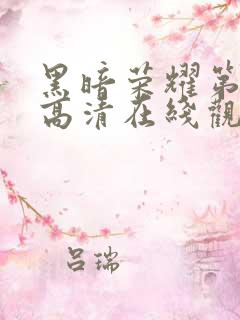 黑暗荣耀第
高清在线觀
吕瑞